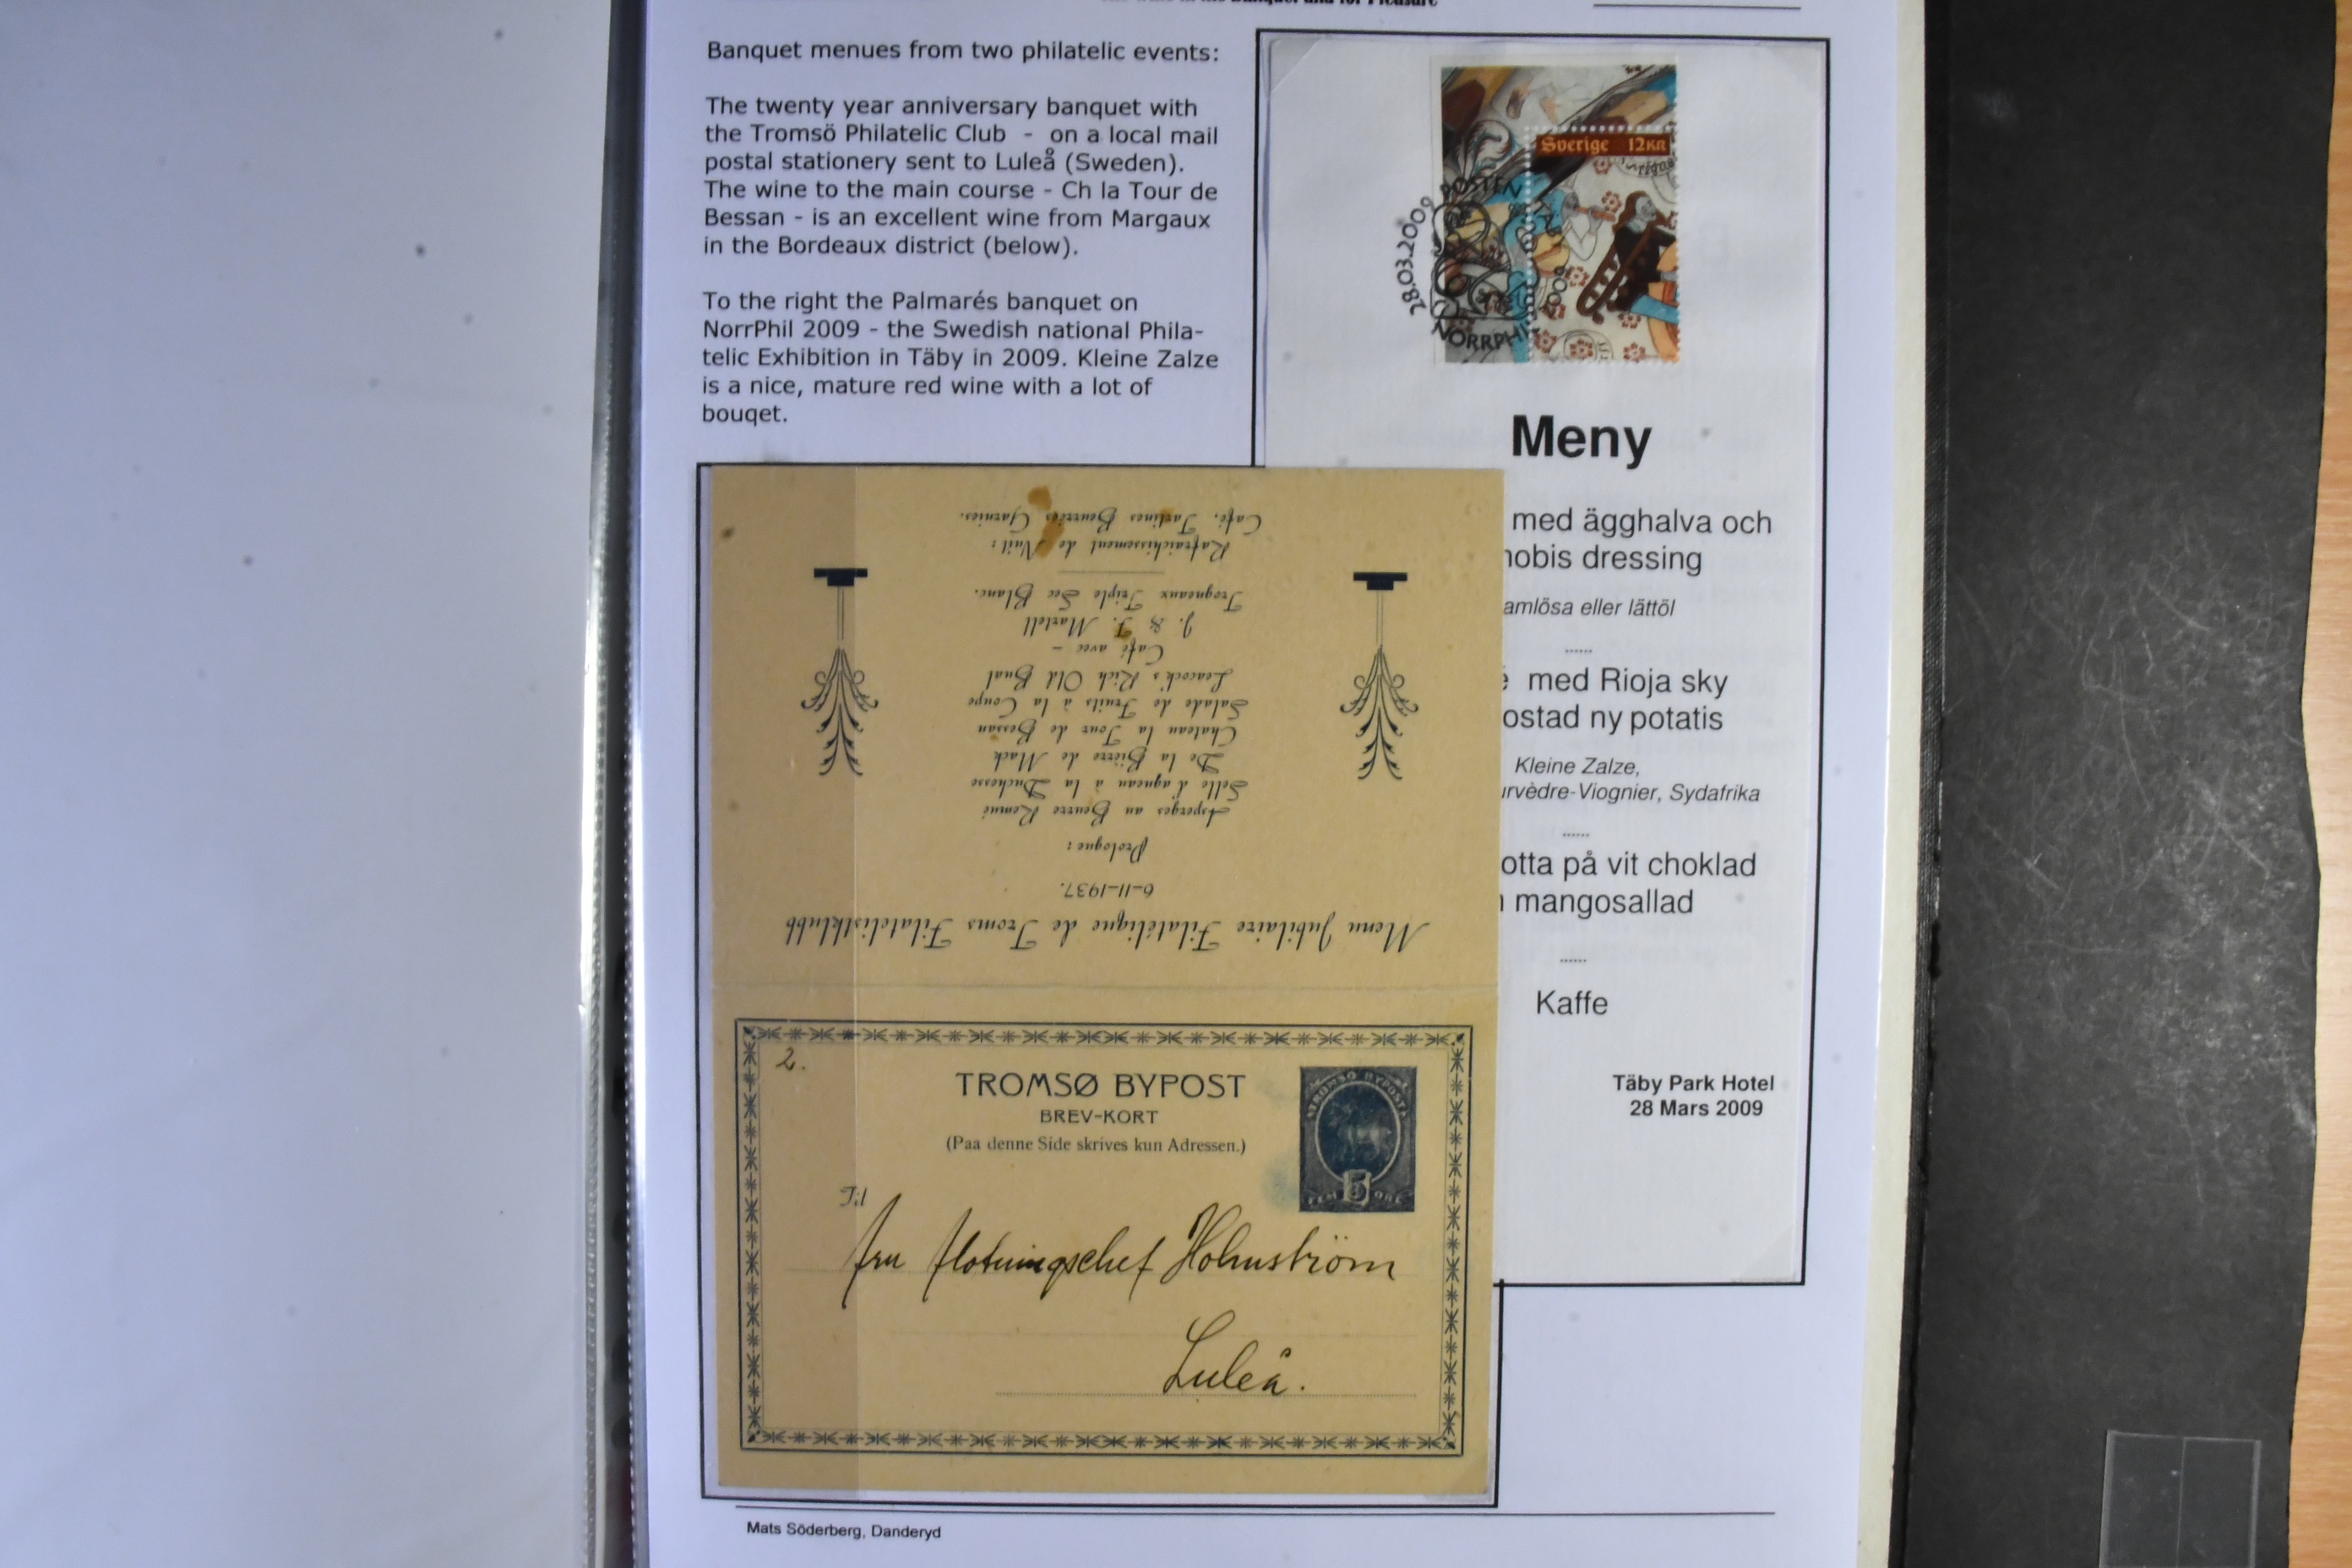 Banquet menues from two philatelic events:
The twenty year anniversary banquet with
the Tromsö Philatelic Club - on a local mail
postal stationery sent to Luleå (Sweden).
The wine to the main course - Ch la Tour de
Bessan - is an excellent wine from Margaux
in the Bordeaux district (below).
To the right the Palmarés banquet on
NorrPhil 2009 - the Swedish national Phila-
telic Exhibition in Täby in 2009. Kleine Zalze
is a nice, mature red wine with a lot of
bouqet.
Sverige 12KR
POSTEN
28.03.2009
NORRPHIL
2009
Meny
med ägghalva och
nobis dressing
amlösa eller lättöl
......
é med Rioja sky
ostad ny potatis
Kleine Zalze,
urvèdre-Viognier, Sydafrika
......
otta på vit choklad
mangosallad
......
Kaffe
Täby Park Hotel
28 Mars 2009
Menu Jubilaire Filatéligue de Troms Filatelistklubb
6-11-1937.
Prologue:
Asperges au Beurre Remué
Selle d'agneau à la Duchesse
De la Bière de Mack
Chateau la Tour de Bessan
Salade de Fruits à la Coupe
Leacock's Rich Old Bual
Café avec -
J. & F. Martell
Trogneaux Triple Sec Blanc.
Rafraichissement de Nuit:
Café, Tartines Beurrées Garnies.
2.
TROMSØ BYPOST
BREV-KORT
(Paa denne Side skrives kun Adressen.)
TROMSØ BYPOST
FEM 5 ØRE
Til
fru flotningschef Holmström
Luleå.
Mats Söderberg, Danderyd